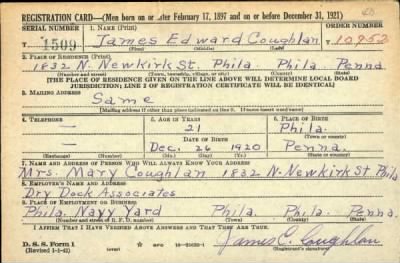 REGISTRATION CARD—(Men born on or after February 17, 1897 and on or before December 31, 1921)
SERIAL NUMBER 1. NAME (Print) ORDER NUMBER
T 1509 James Edward Coughlan 10952
(First) (Middle) (Last)
2. PLACE OF RESIDENCE (Print)
1832 N. Newkirk St. Phila. Phila. Penna.
(Number and street) (Town, township, village, or city) (County) (State)
[THE PLACE OF RESIDENCE GIVEN ON THE LINE ABOVE WILL DETERMINE LOCAL BOARD
JURISDICTION; LINE 2 OF REGISTRATION CERTIFICATE WILL BE IDENTICAL]
3. MAILING ADDRESS
Same
[Mailing address if other than place indicated on line 2. If same insert word same]
4. TELEPHONE 5. AGE IN YEARS 6. PLACE OF BIRTH
— 21 Phila.
DATE OF BIRTH (Town or county)
— Dec. 26 1920 Penna.
(Exchange) (Number) (Mo.) (Day) (Yr.) (State or country)
7. NAME AND ADDRESS OF PERSON WHO WILL ALWAYS KNOW YOUR ADDRESS
Mrs. Mary Coughlan 1832 N. Newkirk St. Phila
8. EMPLOYER'S NAME AND ADDRESS
Dry Dock Associates
9. PLACE OF EMPLOYMENT OR BUSINESS
Phila. Navy Yard Phila. Phila. Penna.
(Number and street or R. F. D. number) (Town) (County) (State)
I AFFIRM THAT I HAVE VERIFIED ABOVE ANSWERS AND THAT THEY ARE TRUE.
D. S. S. Form 1
(Revised 1-1-42) (over)
James E. Coughlan